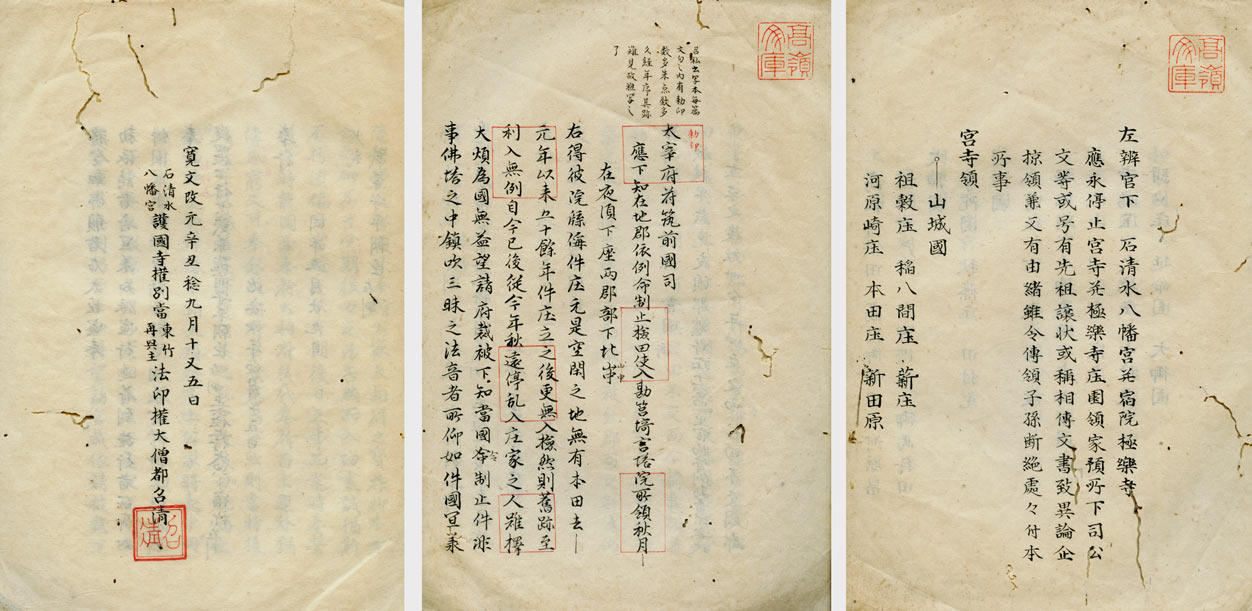 高嶺文庫
左辨官下 石清水八幡宮并宿院極樂寺
應永停止宮寺并極樂寺庄園領家預所下司公
文等或号有先祖讓状或稱相傳文書致異論企
掠領兼又有由緒雖令傳領子孫断絶處々付本
所事
宮寺領
山城國
祖穀庄 稲八間庄 薪庄
河原崎庄 本田庄 新田原
高嶺文庫
私云写本毎篇
文句之内有勅印
数多朱点数多
久経年序其跡
難見故粗写之
了
勅印
太宰府符筑前國司
應下知在地郡依例令制止検田使入勘筥埼宮塔院所領秋月
在夜須下座兩郡部下北山中
右得彼院牒偁件庄元是空閑之地無有本田去
元年以来五十餘年件庄立之後更無入檢然則舊跡至
利入無例自今已後從今年秋遠停乱入庄家之人雖擇
大煩為國無益望請府裁被下知當國令制止件非
事佛塔之中鎮吹三昧之法音者所仰如件國宜承
寛文改元辛丑稔九月十又五日
石清水八幡宮護國寺權別當東竹再興主法印權大僧都召清
召清